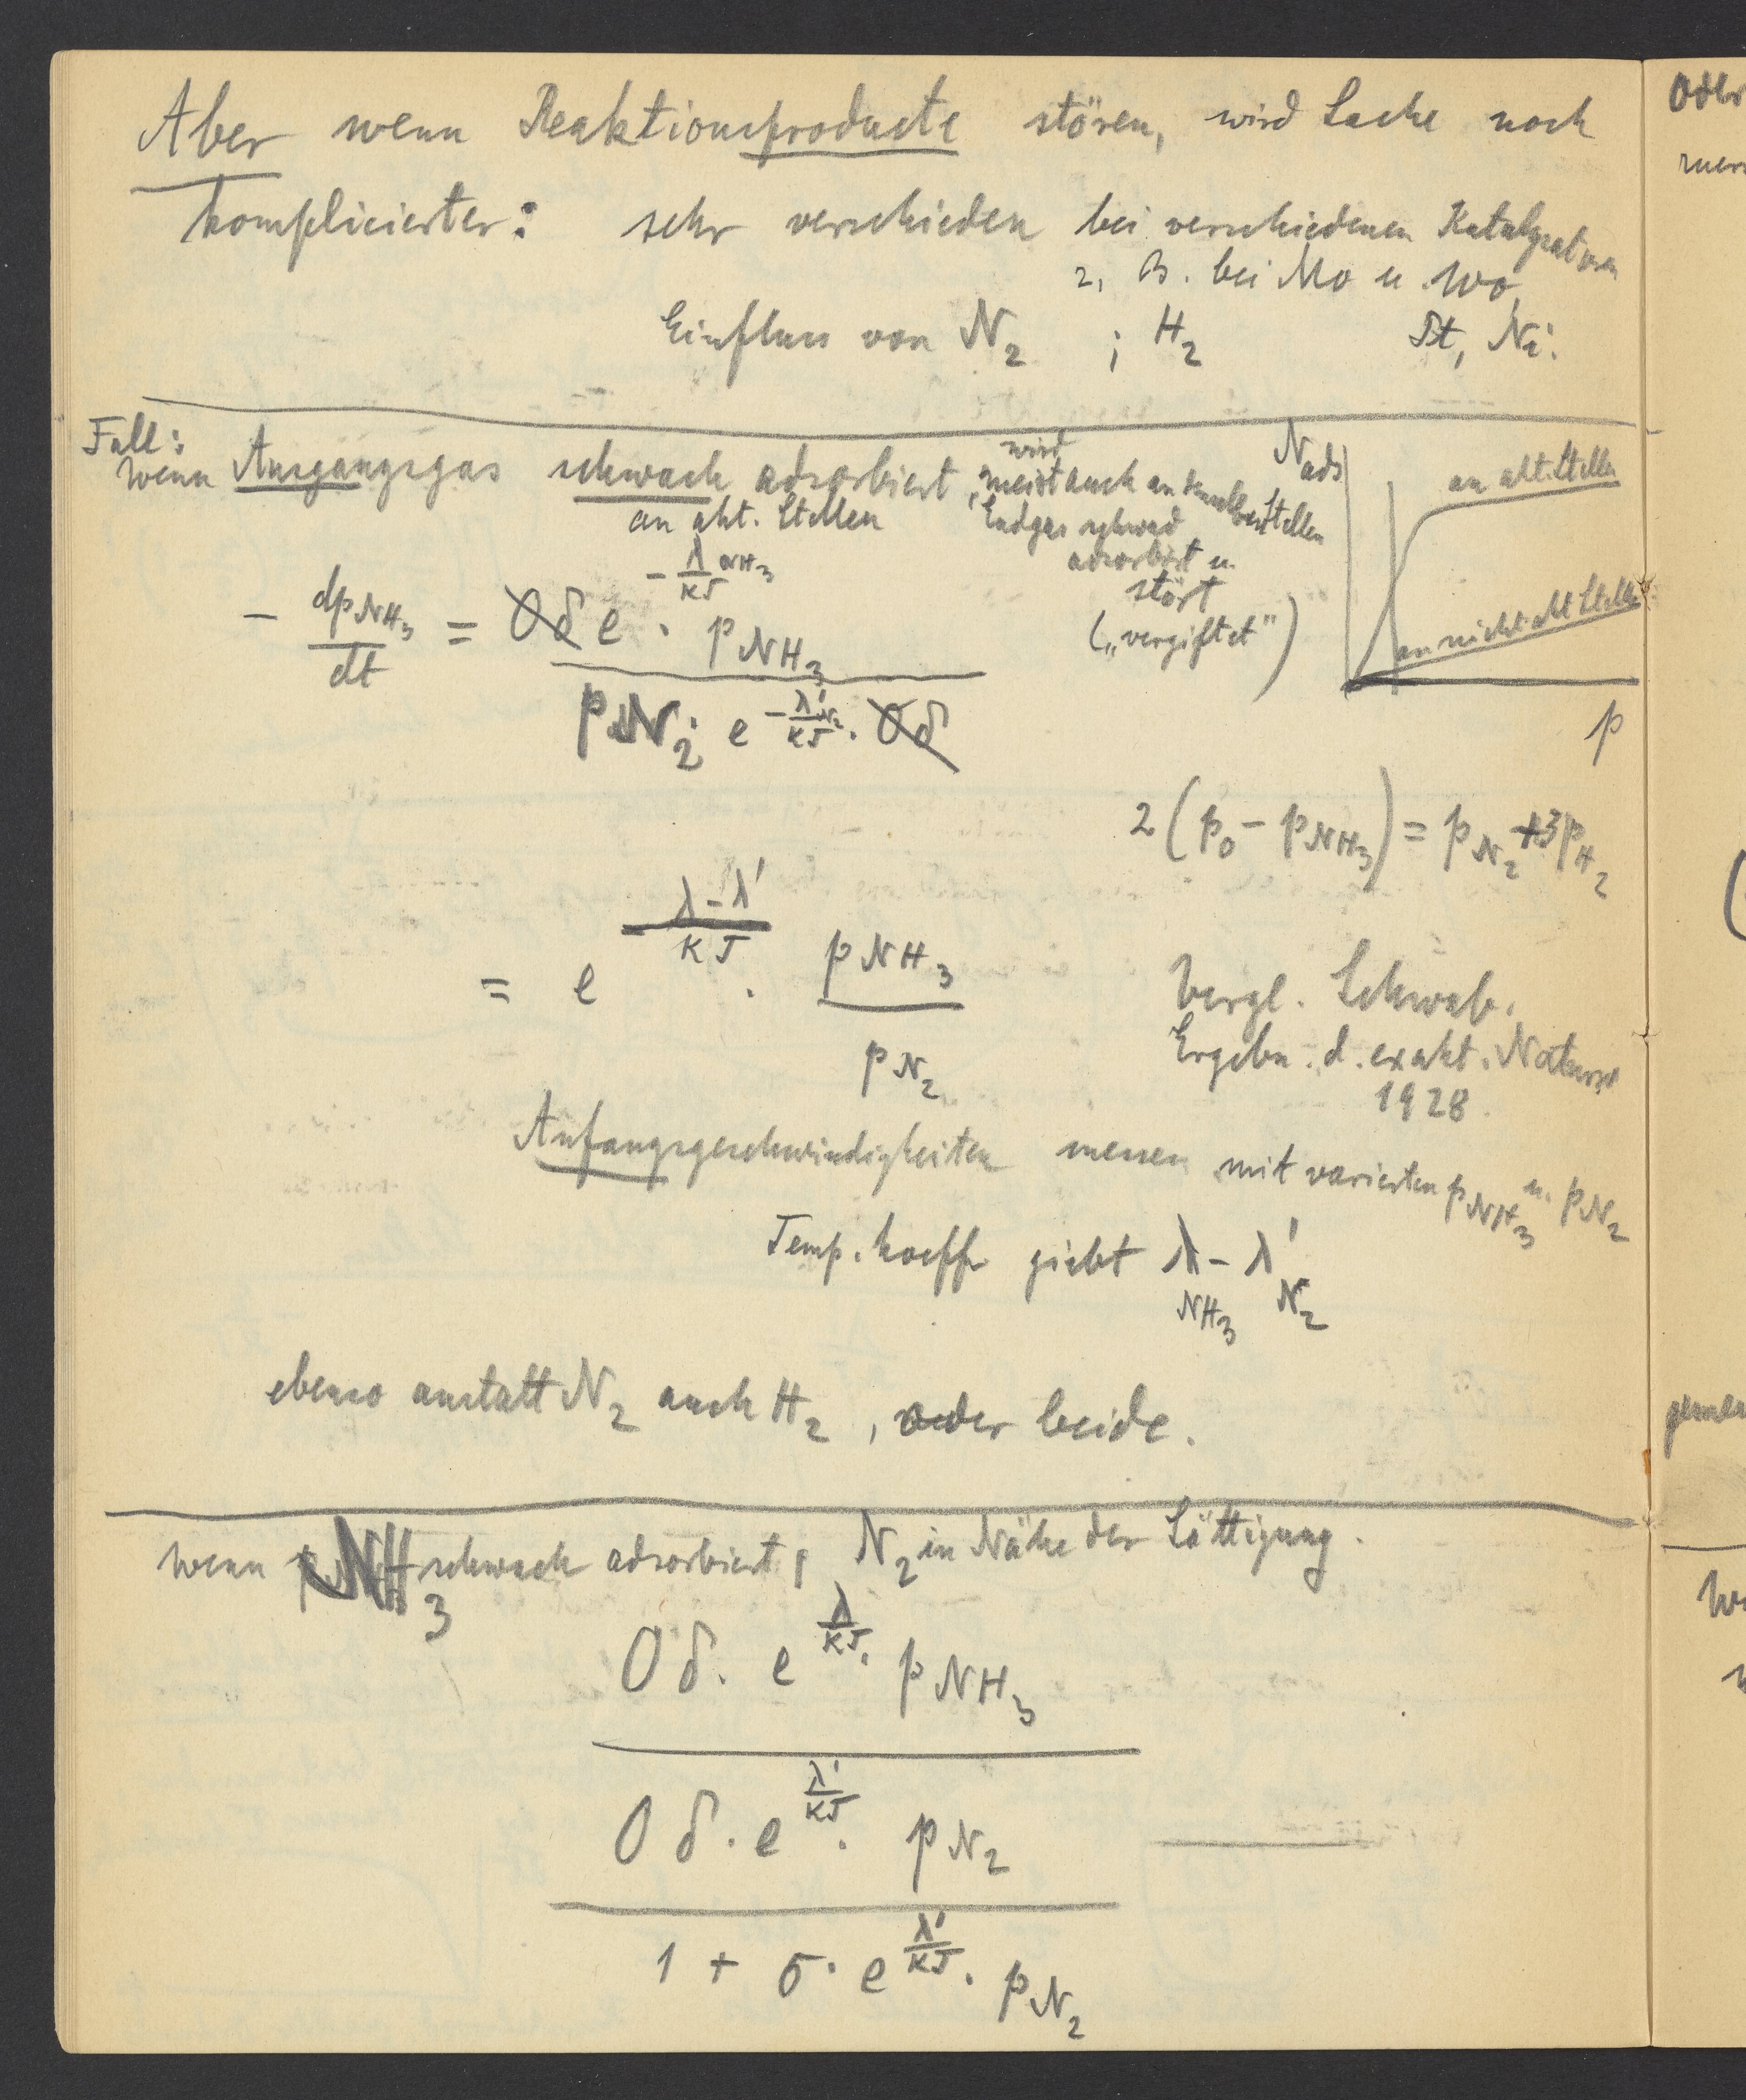 Aber wenn Reaktionsproducte stören, wird Sache noch
komplicierter: sehr verschieden bei verschiedenen Katalysatoren
z. B. bei Mo u. Wo
Einfluss von N2 ; H2 Pt, Ni.
Fall:
Wenn Ausgangsgas schwach adsorbiert,
an akt. Stellen
wird
meist auch an Stellen
Endgas schwach
adsorbiert u.
stört
("vergiftet")
N ads
an akt. Stellen
an nicht akt Stellen
p
- dp NH3 / dt = Oδ e^(- λ/KT NH3) · p NH3 / p N2 e^(- λ' N2/KT) · Oδ
2 (p0 - p NH3) = p N2 + 3 p H2
= e^(- (λ - λ')/KT) · p NH3 / p N2
Vergl. Schwab.
Ergebn. d. exakt. Naturw
1928.
Anfangsgeschwindigkeiten messen mit varierten p NH3 u. p N2
Temp. koeff giebt λ - λ'
NH3 N2
ebenso anstatt N2 auch H2, oder beide.
Wenn NH3 schwach adsorbiert, N2 in Nähe der Sättigung.
Oδ · e^(λ/KT) · p NH3
Oδ · e^(λ'/KT) · p N2
1 + σ · e^(λ'/KT) · p N2
oder